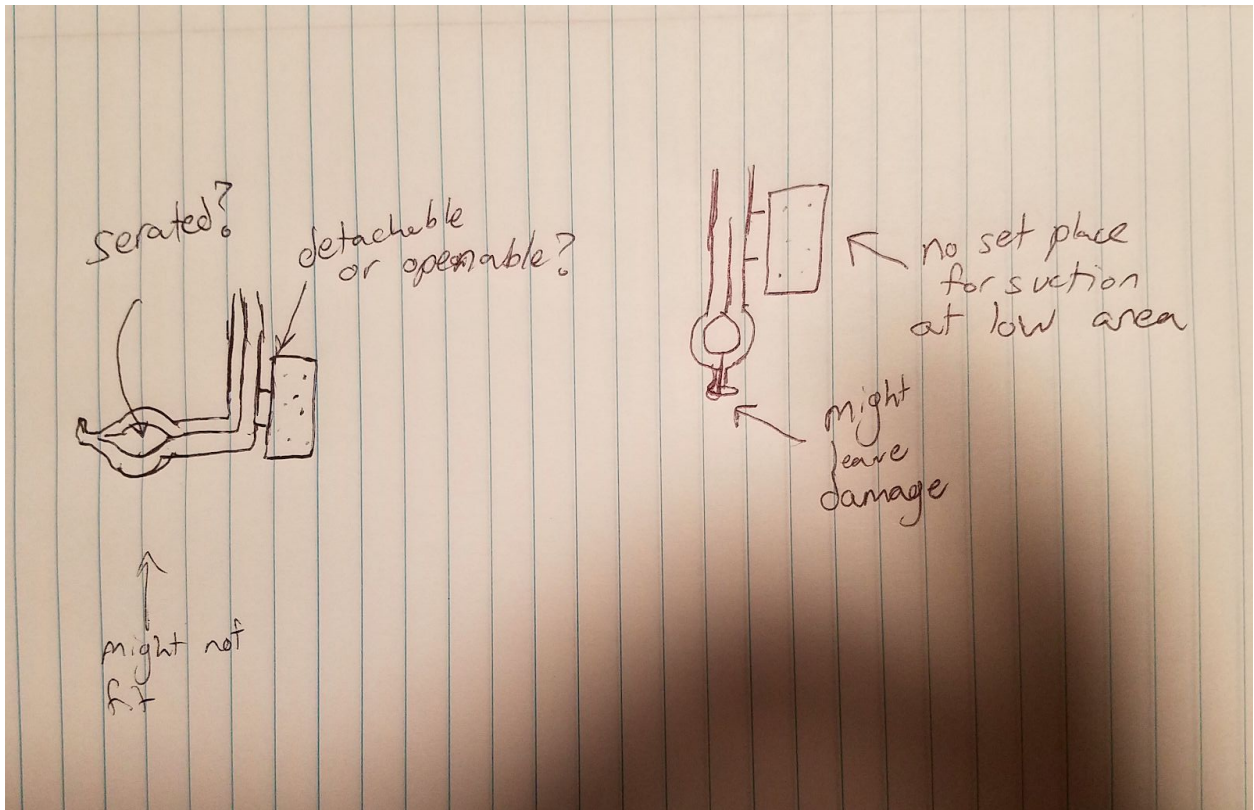 serated?
detachable
or openable?
might not
fit
no set place
for suction
at low area
might
leave
damage